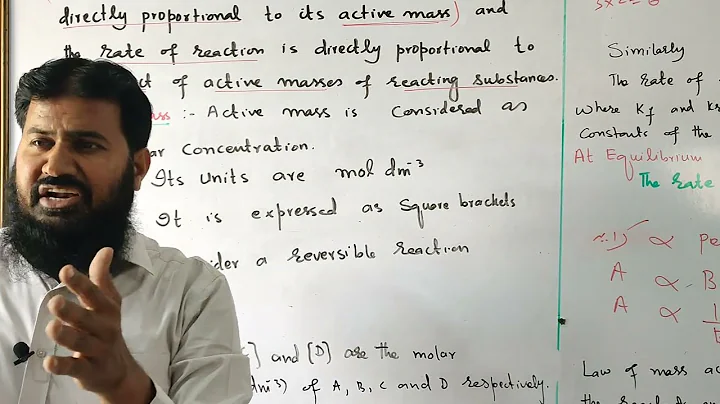 directly proportional to its active mass) and
the rate of reaction is directly proportional to
of active masses of reacting substances.
:- Active mass is Considered as
Concentration.
Its units are mol dm⁻³
It is expressed as Square brackets
a reversible reaction
] and [D] are the molar
of A, B, C and D respectively.
Similarly
The rate of
where Kf and
Constants of the
At Equilibrium
The rate
∝
A ∝ B
A ∝ 1
Law of mass
the